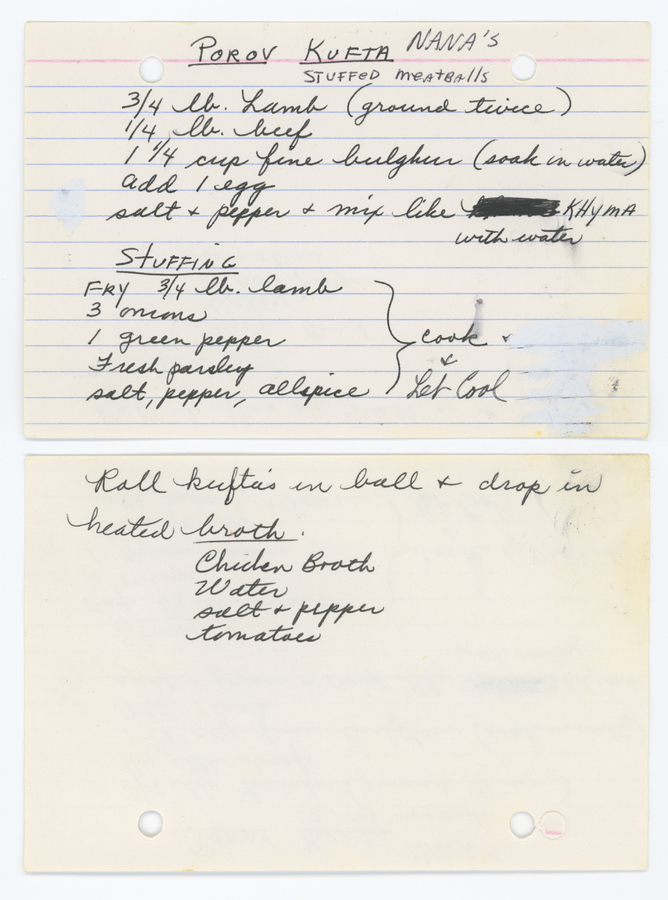 POROV KUFTA NANA'S
STUFFED meatballs
3/4 lb. Lamb (ground twice)
1/4 lb. beef
1 1/4 cup fine bulghur (soak in water)
add 1 egg
salt + pepper + mix like KHYMA
with water
STUFFING
FRY 3/4 lb. lamb
3 onions
1 green pepper
Fresh parsley
salt, pepper, allspice
cook +
+
Let Cool
Roll kufta's in ball + drop in
heated broth.
Chicken Broth
Water
salt + pepper
tomatoes